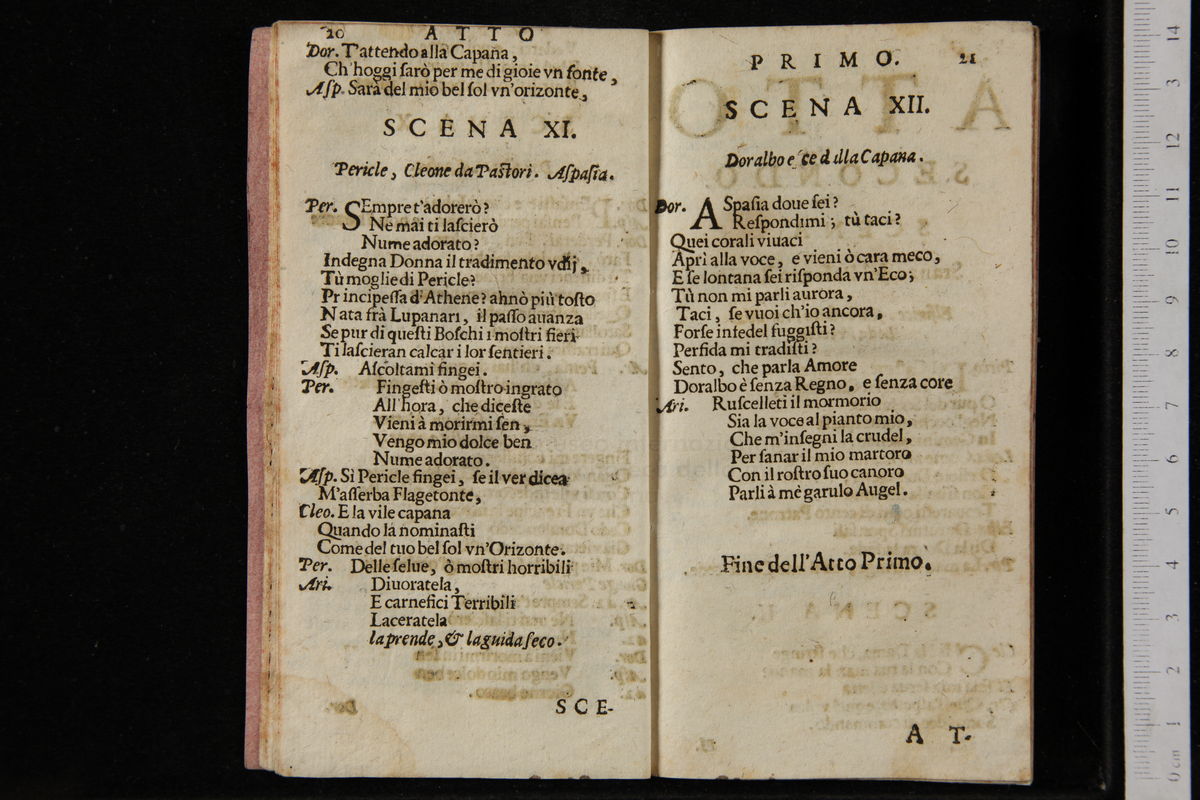 20 ATTO
Dor. T'attendo alla Capana,
Ch'hoggi ſarò per me di gioie vn fonte,
Aſp. Sarà del mio bel ſol vn'orizonte,
SCENA XI.
Pericle, Cleone da Paſtori. Aſpaſia.
Per. SEmpre t'adorerò?
Ne mai ti laſcierò
Nume adorato?
Indegna Donna il tradimento vdij,
Tù moglie di Pericle?
Principeſſa d'Athene? ah nò più toſto
Nata frà Lupanari, il paſſo auanza
Se pur di queſti Boſchi i moſtri fieri
Ti laſcieran calcar i lor ſentieri.
Aſp. Aſcoltami fingei.
Per. Fingeſti ò moſtro ingrato
All'hora, che diceſte
Vieni à morirmi ſen,
Vengo mio dolce ben
Nume adorato.
Aſp. Si Pericle fingei, ſe il ver dicea
M'aſſerba Flagetonte,
Cleo. E la vile capana
Quando la nominaſti
Come del tuo bel ſol vn'Orizonte.
Per. Delle ſelue, ò moſtri horribili
Ari. Diuoratela,
E carnefici Terribili
Laceratela
la prende, & la guida ſeco.
SCE-
PRIMO. 21
SCENA XII.
Doralbo eſce dalla Capana.
Dor. ASpaſia doue ſei?
Reſpondimi; tù taci?
Quei corali viuaci
Aprì alla voce, e vieni ò cara meco,
E ſe lontana ſei riſponda vn'Eco;
Tù non mi parli aurora,
Taci, ſe vuoi ch'io ancora,
Forſe infedel fuggiſti?
Perfida mi tradiſti?
Sento, che parla Amore
Doralbo è ſenza Regno, e ſenza core
Ari. Ruſcelleti il mormorio
Sia la voce al pianto mio,
Che m'inſegni la crudel,
Per ſanar il mio martoro
Con il roſtro ſuo canoro
Parli à mè garulo Augel.
Fine dell'Atto Primo.
AT-
14
13
12
11
10
9
8
7
6
5
4
3
2
1
0 cm